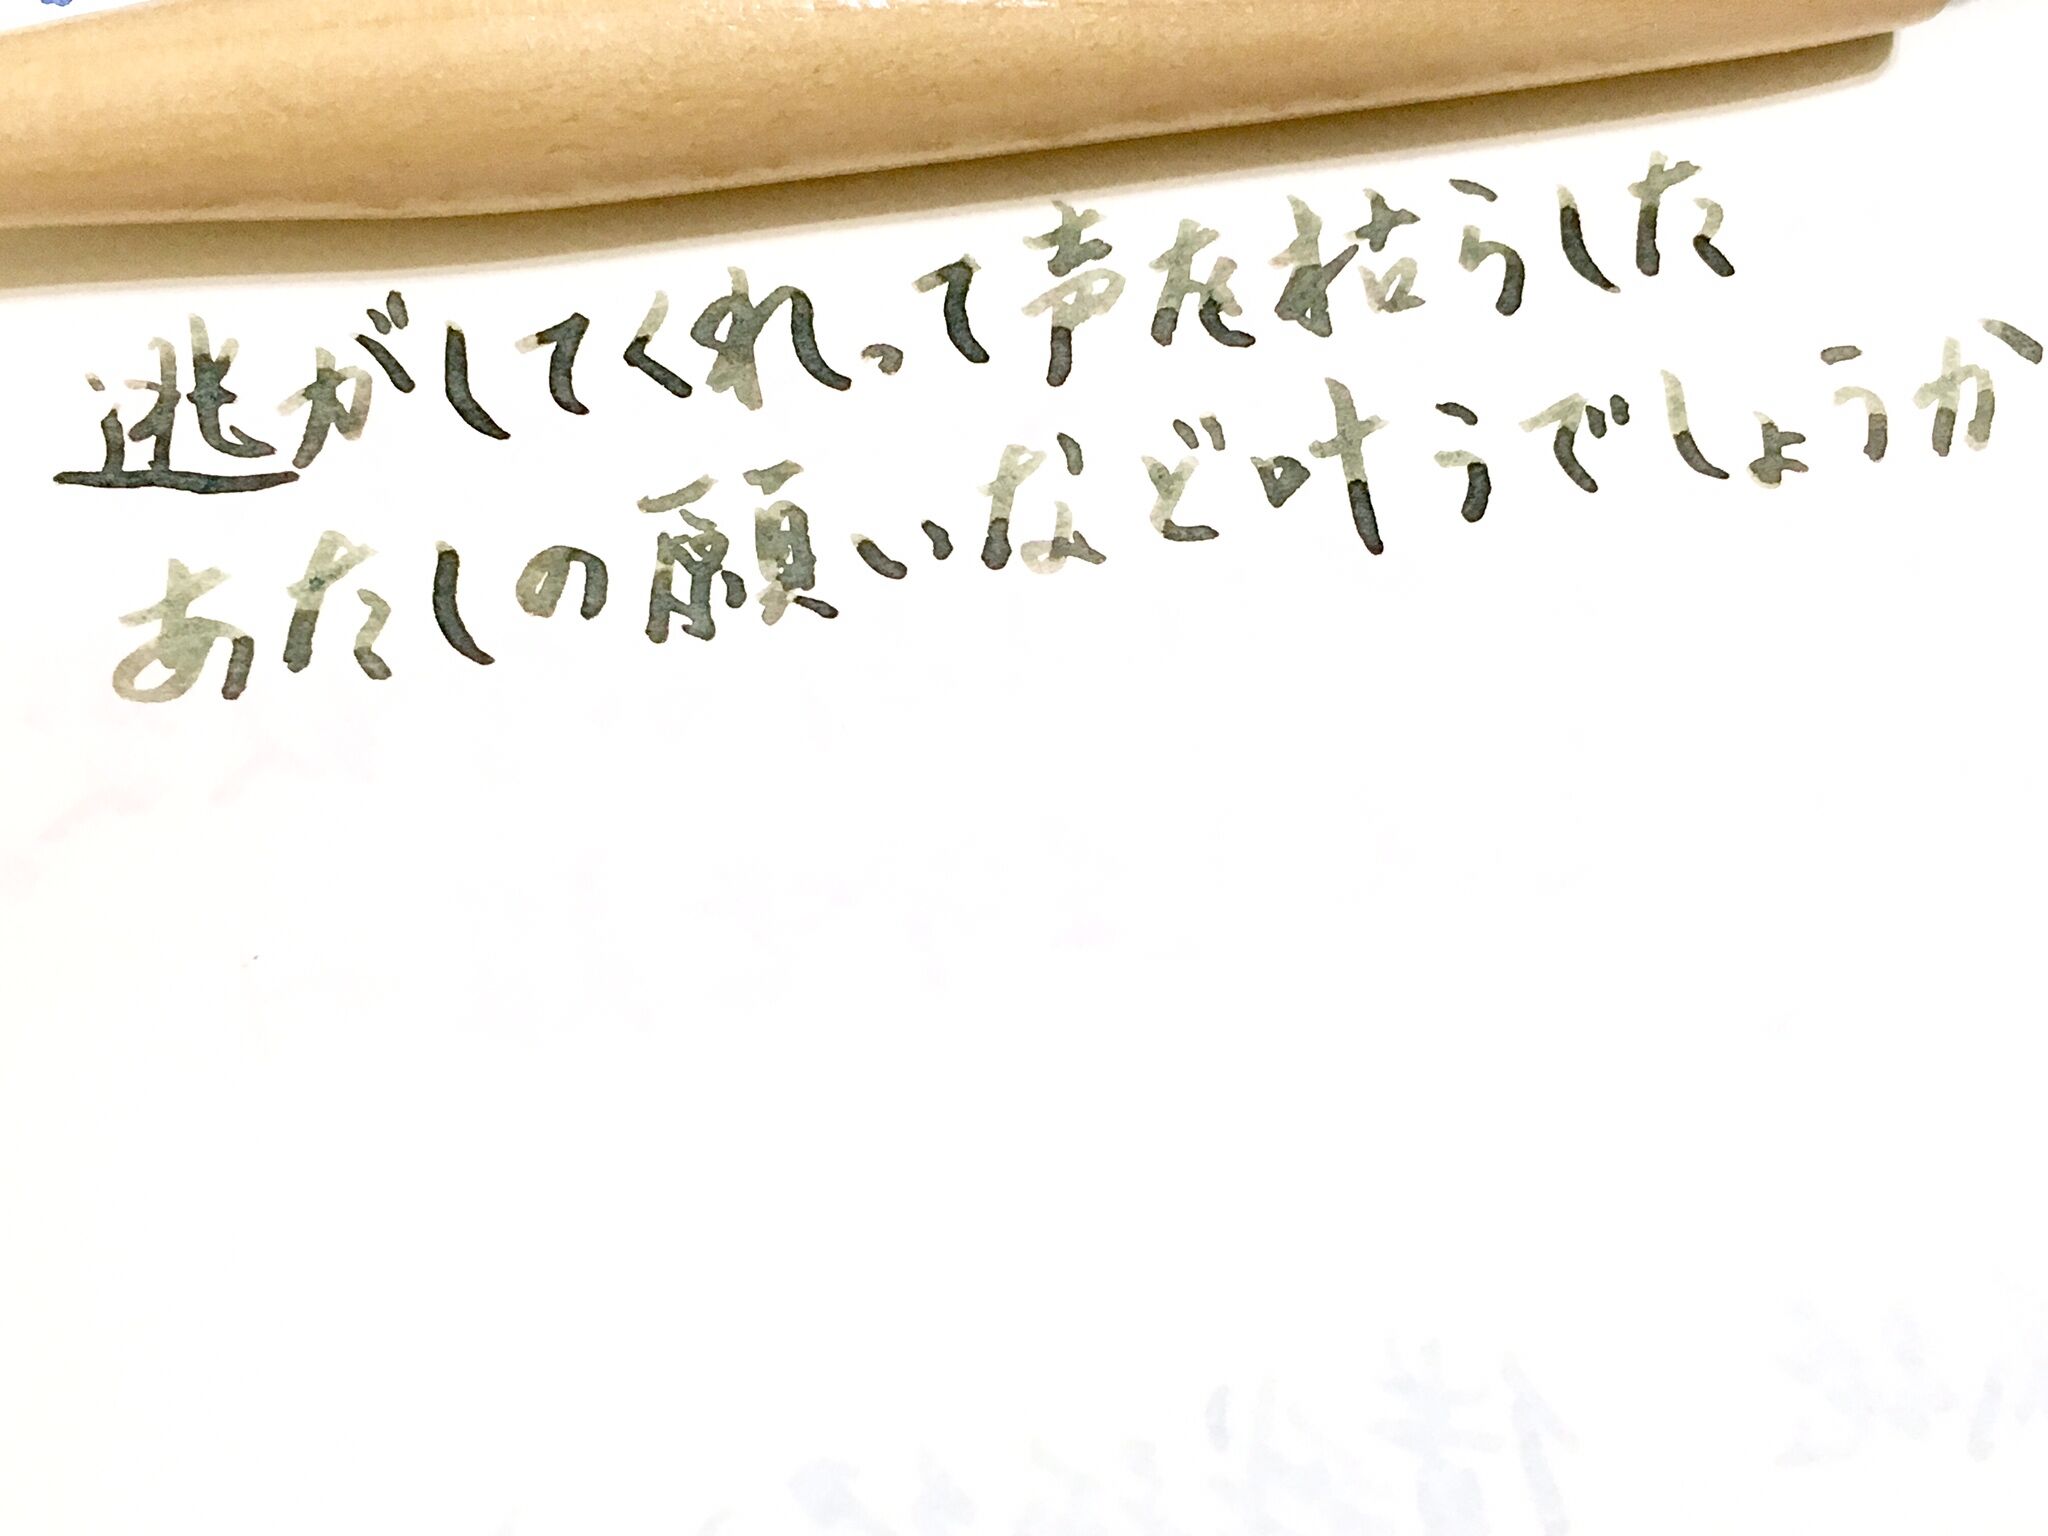 逃がしてくれって声を枯らした
あたしの願いなど叶うでしょうか